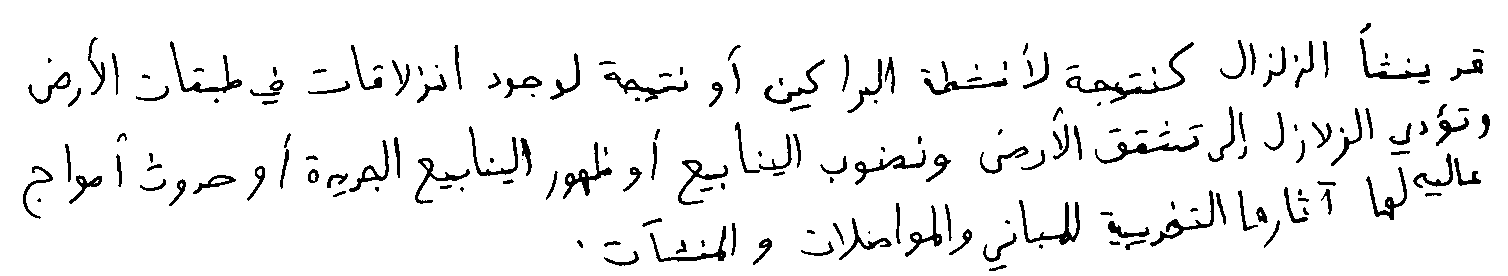 قد ينشأ الزلزال كنتيجة لأنشطة البراكين أو نتيجة لوجود انزلاقات في طبقات الأرض
وتؤدي الزلازل إلى تشقق الأرض ونضوب الينابيع أو ظهور الينابيع الجديدة أو حدوث أمواج
عاليه لها آثارها التخريبية للمباني والمواصلات والمنشآت .